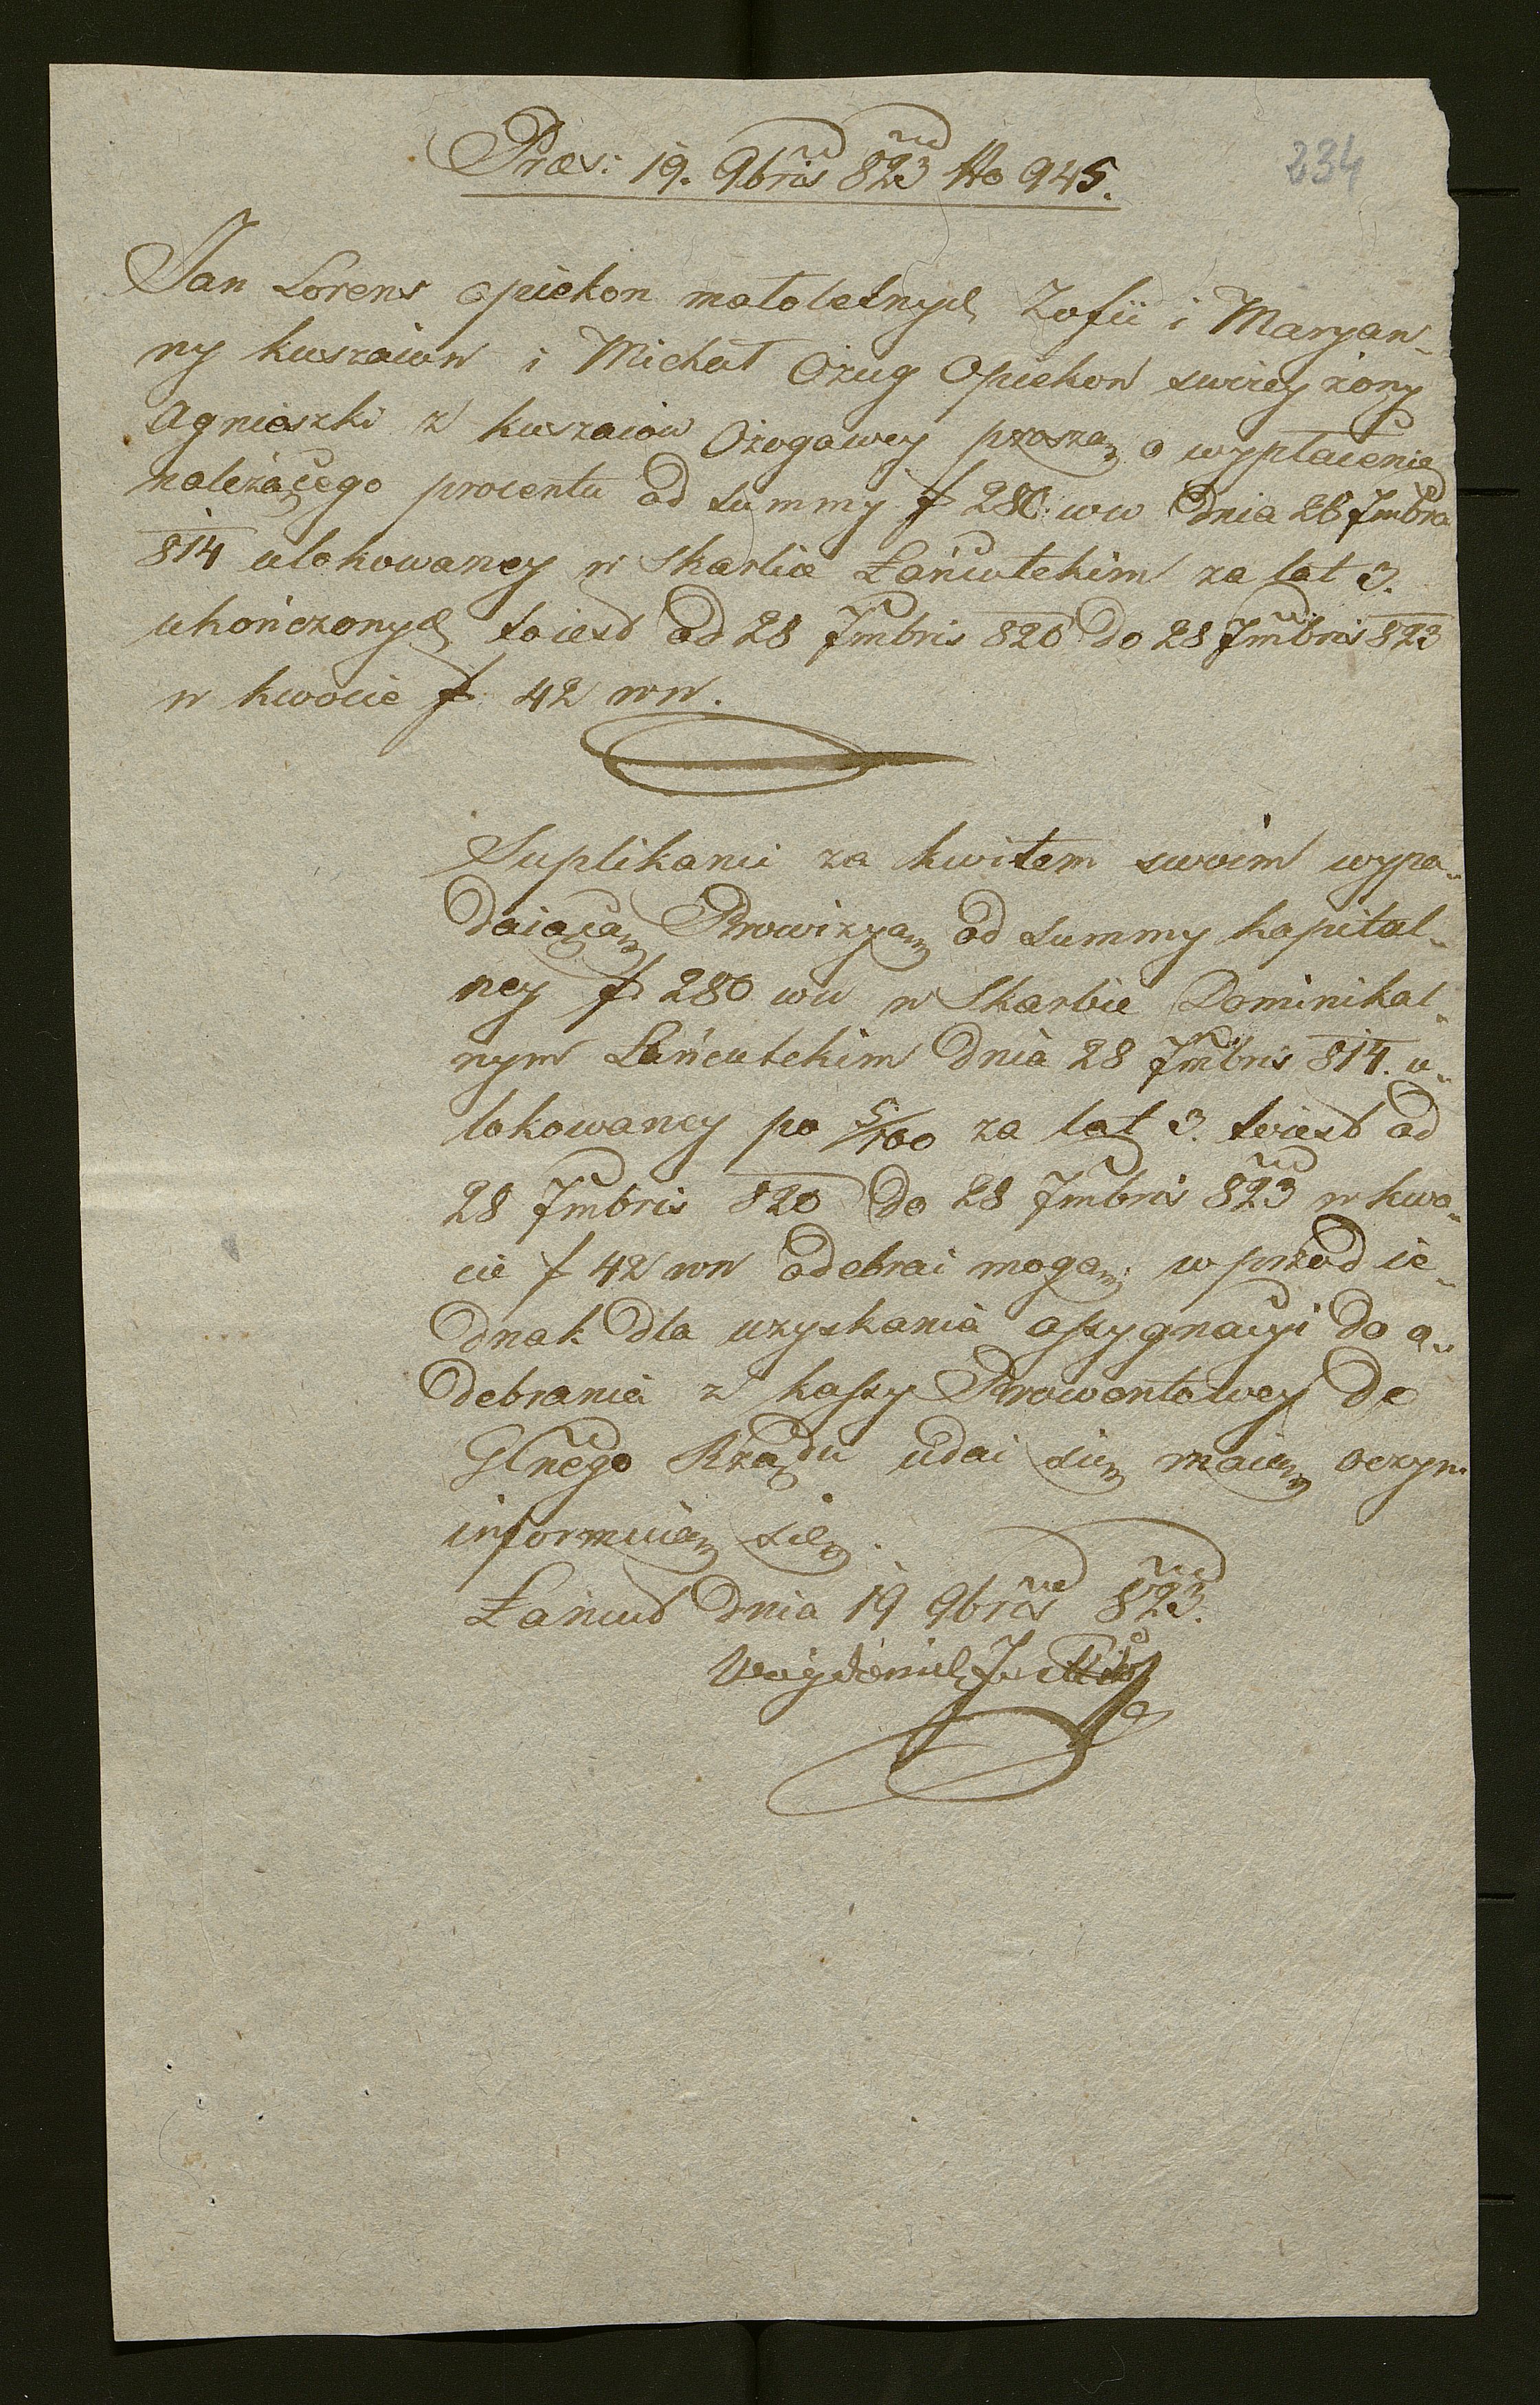 Præs: 19. 9bris 823 No 945.
234
Jan Lorens opiekon małoletnych Zofii i Maryan-
ny kuszaiow i Michał Ożug Opiekon swoiey żony
Agnieszki z kuszaiow Ożogowey proszą o wypłacenie
należącego procentu od summy f 280 ww dnia 28 7mbra
814 ulokowaney w Skarbie Łańcutskim za lat 3.
ukończonych toiest od 28 7mbris 820 do 28 7mbris 823
w kwocie f 42 ww.
Suplikanci za kwitem swoim wypa-
daiącą Prowizyą od summy kapital-
ney f 280 ww w Skarbie Dominikal-
nym Łańcutskim dnia 28 7mbris 814. u-
lokowaney po 5/100 za lat 3. toiest od
28 7mbris 820 do 28 7mbris 823 w kwo-
cie f 42 ww odebrać mogą; wprzod ie-
dnak dla uzyskania assygnacyi do o-
debrania z kassy Prowentowey do
Głnego Rządu udać się maią oczym
informuią się.
Łańcut dnia 19 9bris 823.